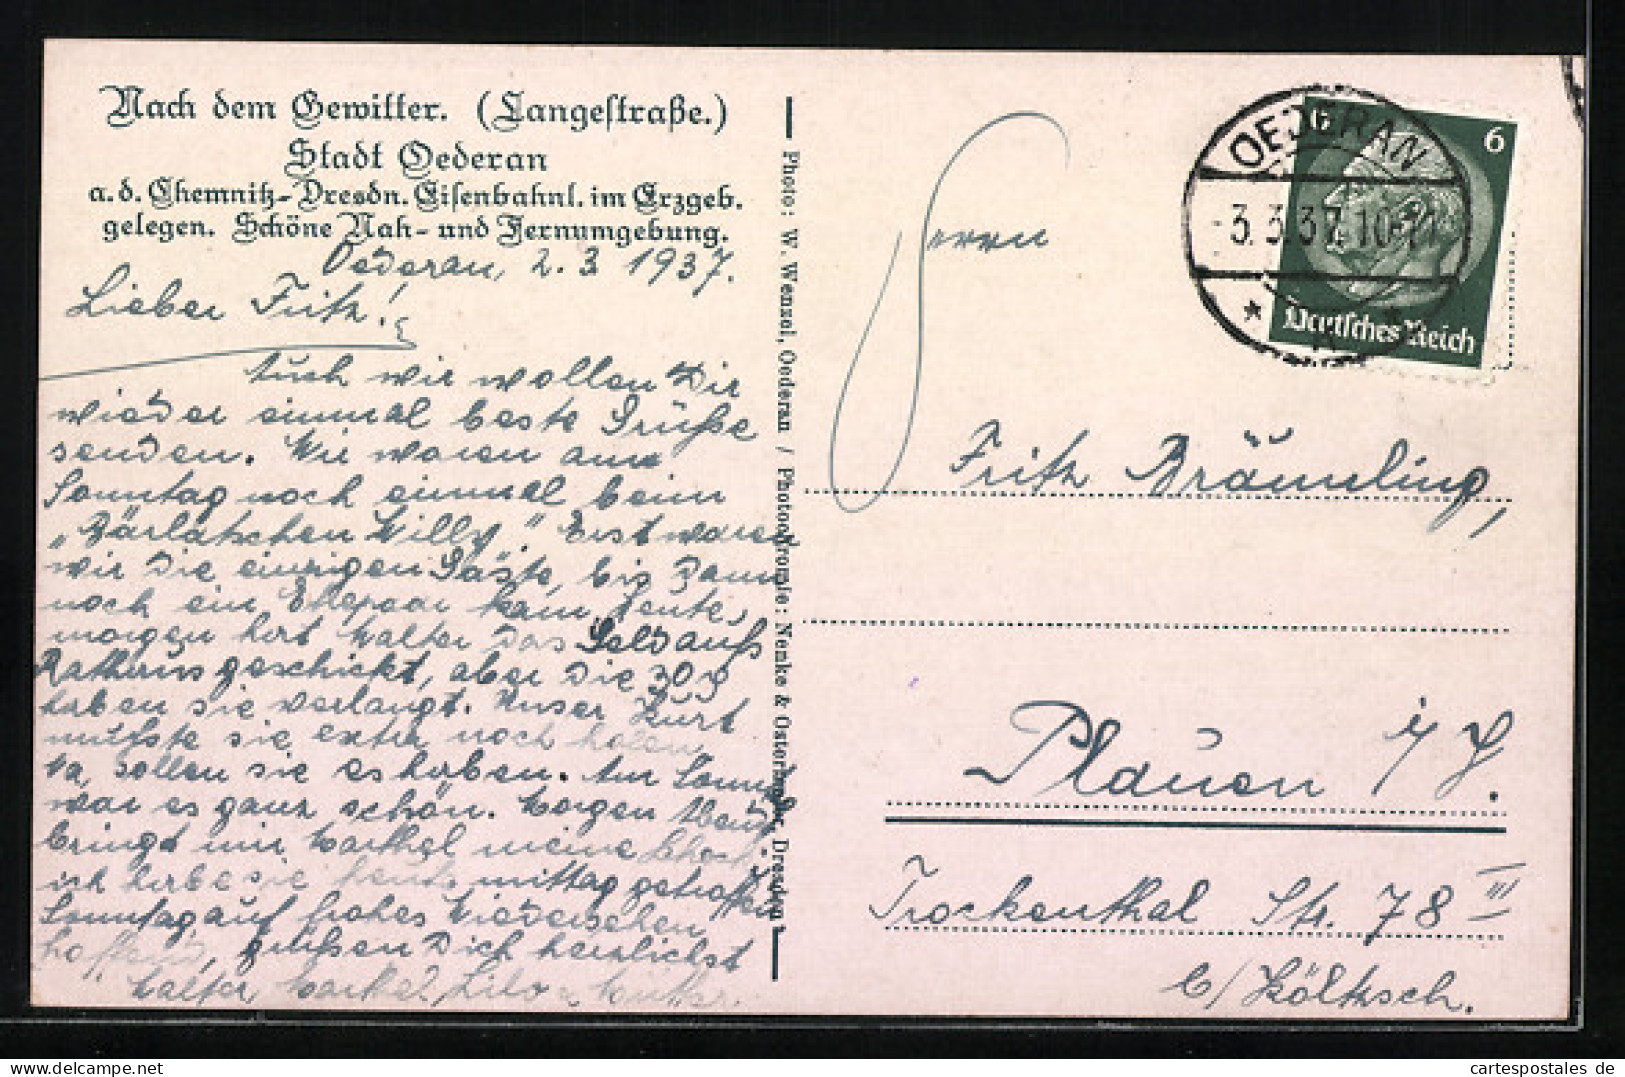 Nach dem Gewitter. (Langestraße.)
Stadt Oederan
a. d. Chemnitz-Dresdn. Eisenbahnl. im Erzgeb.
gelegen. Schöne Nah- und Fernumgebung.
Oederan, 2. 3. 1937.
Lieber Fritz!
Auch wir wollen Dir
wieder einmal beste Grüße
senden. Wir waren am
Sonntag noch einmal beim
„Bärlatschen Willy." Erst waren
wir die einzigen Gäste, bis dann
noch ein Ehepaar kam. Heute
morgen hat Walter das Geld aufs
Rathaus geschickt, aber die 30
haben sie verlangt. Unser Kurt
mußte sie extra noch holen
na, sollen sie es haben. Am Sonntag
war es ganz schön. Morgen Abend
bringt mir meine
ich habe sie heute mittag getroffen
Sonntag auf frohes Wiedersehen
hoffend, grüßen Dich herzlichst
Walter, Lilo
Photo: W. Wenzel, Oederan / Photochromie: Nenke & Ostermaier, Dresden
OEDERAN
-3.3.37.10-11
* *
6 6
Deutsches Reich
Herrn
Fritz Bräunling,
Plauen i/V.
Trockenthal Str. 78 III
b/ Költzsch.
www.cartespostales.de